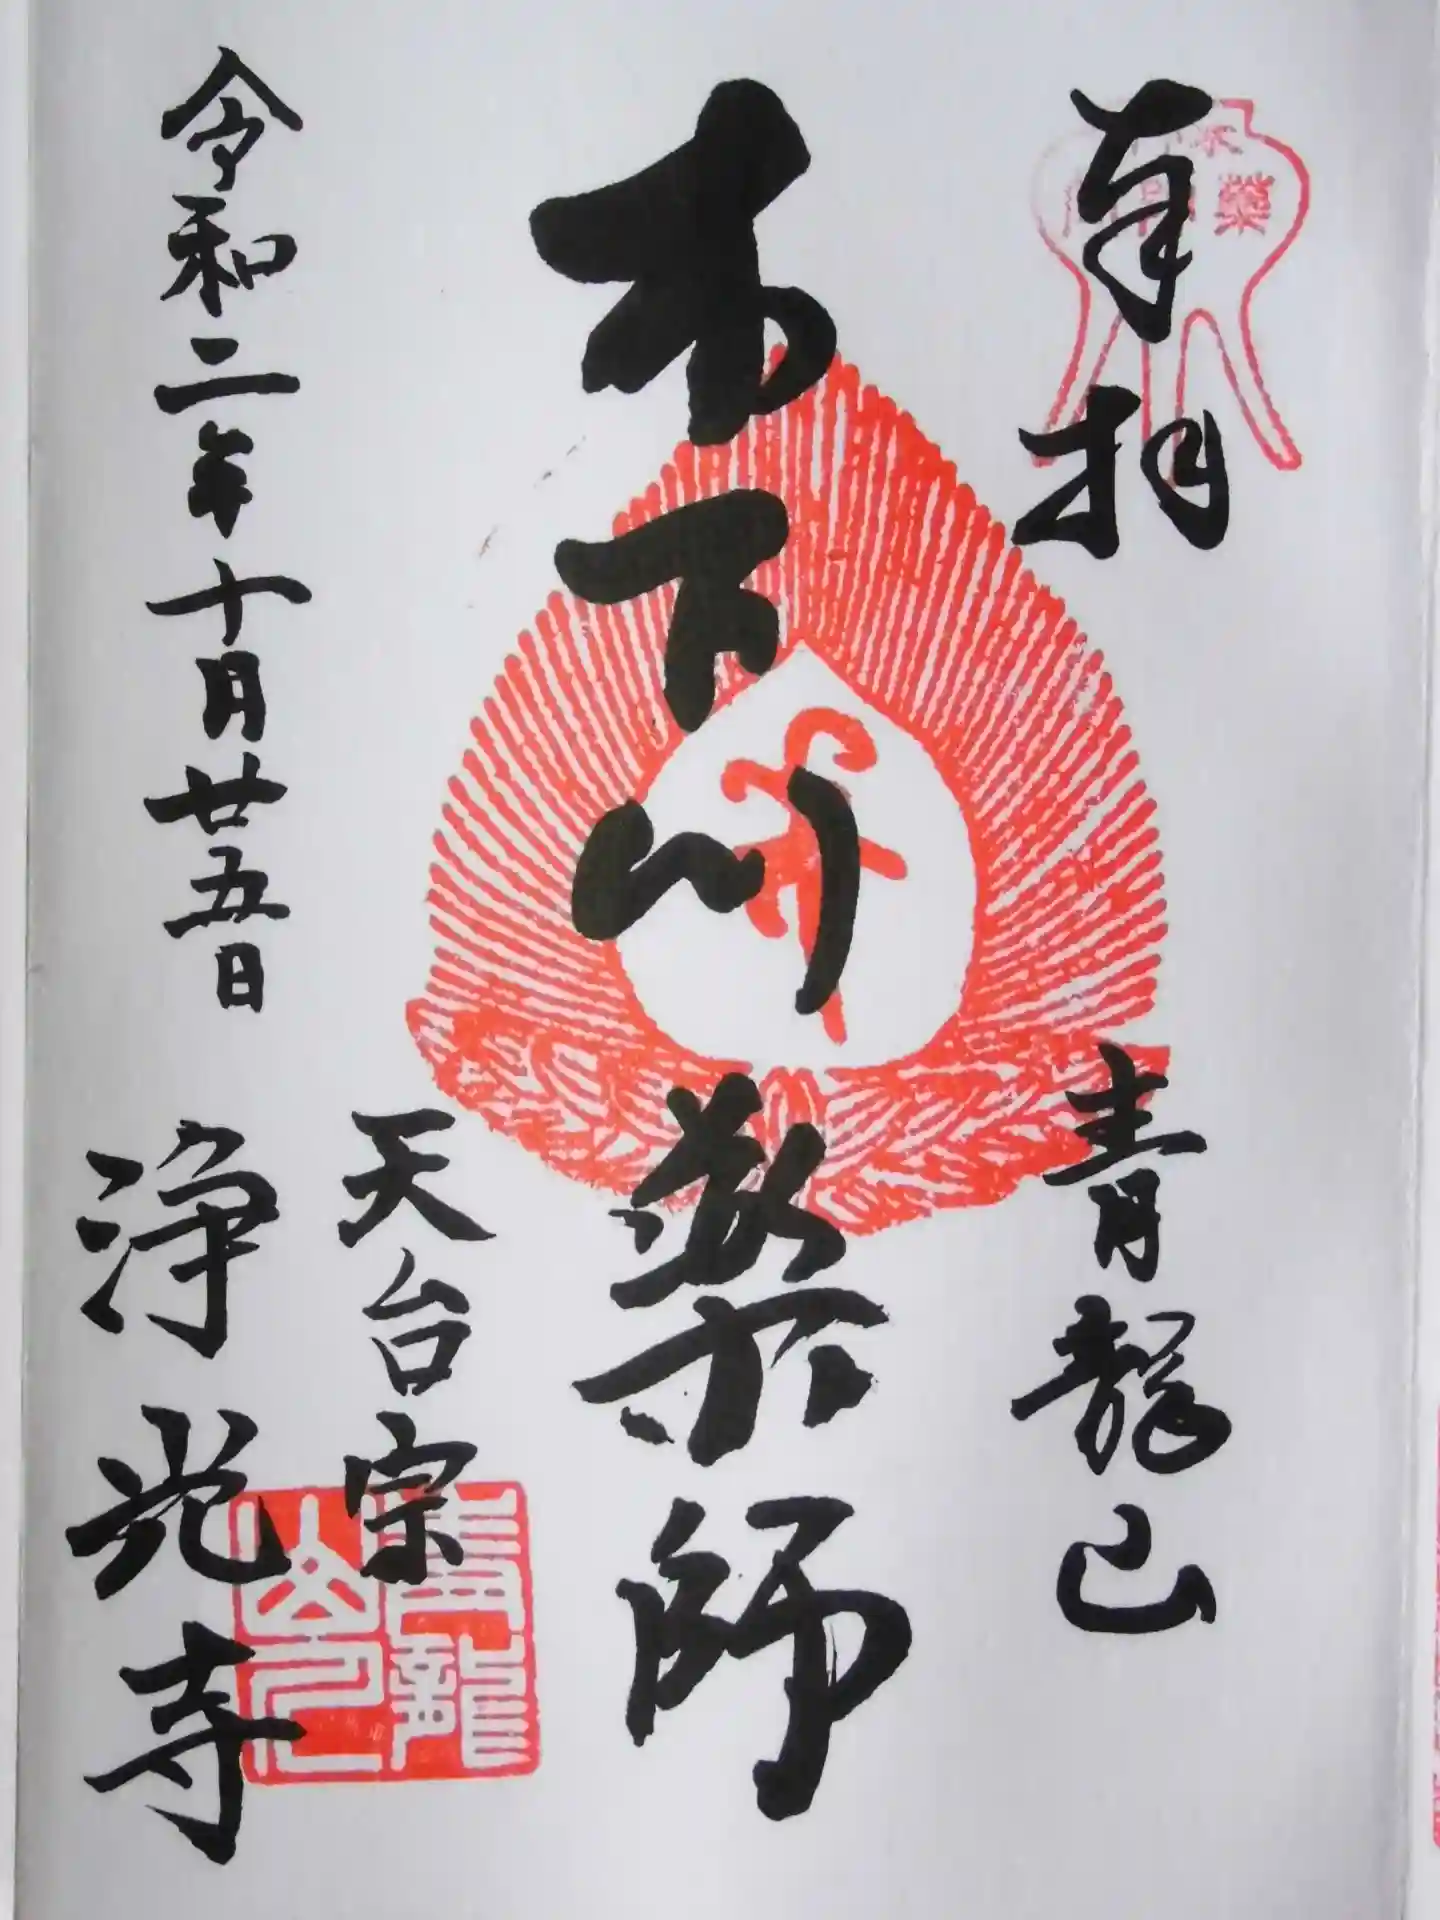 奉拝
青龍山
木下川薬師
天台宗
令和二年十月廿五日
浄光寺
青龍